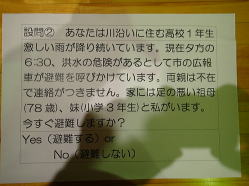 設問② あなたは川沿いに住む高校1年生
激しい雨が降り続いています。現在夕方の
6:30、洪水の危険があるとして市の広報
車が避難を呼びかけています。両親は不在
で連絡がつきません。家には足の悪い祖母
(78歳)、妹(小学3年生)と私がいます。
今すぐ避難しますか？
Yes（避難する）or
No（避難しない）